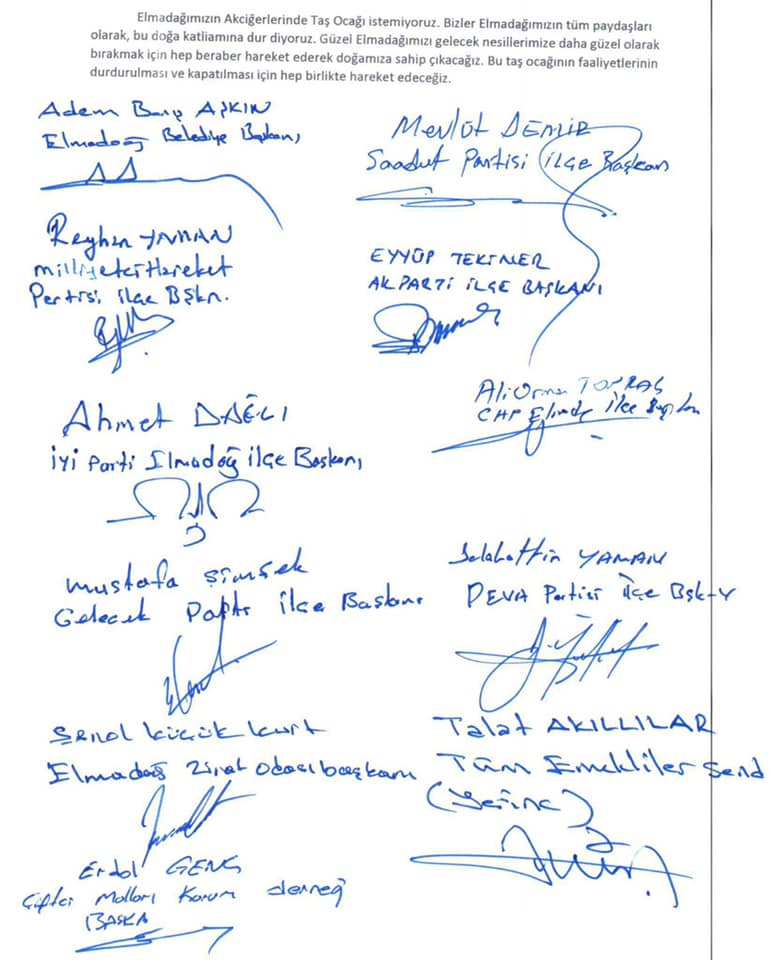 Elmadağımızın Akciğerlerinde Taş Ocağı istemiyoruz. Bizler Elmadağımızın tüm paydaşları
olarak, bu doğa katliamına dur diyoruz. Güzel Elmadağımızı gelecek nesillerimize daha güzel olarak
bırakmak için hep beraber hareket ederek doğamıza sahip çıkacağız. Bu taş ocağının faaliyetlerinin
durdurulması ve kapatılması için hep birlikte hareket edeceğiz.
Adem Barış AŞKIN
Elmadağ Belediye Başkanı
Mevlüt DEMİR
Saadet Partisi İlçe Başkanı
Reyhan YAMAN
Milliyetçi Hareket
Partisi ilçe Bşkn.
EYYÜP TEKİNER
AK PARTİ İLÇE BAŞKANI
Ahmet DAĞCI
İyi Parti Elmadağ ilçe Başkanı
TOPRAK
CHP ilçe
Mustafa Şimşek
Gelecek ilçe
Selahattin YAMAN
DEVA Partisi ilçe Bşk-Y
Şenol küçükkurt
Elmadağ Ziraat Odası başkanı
Talat AKILLILAR
Tüm Emekliler Send
(Yerine)
Erdal GENÇ
Çiftçi Malları Korum derneğ
BAŞKA